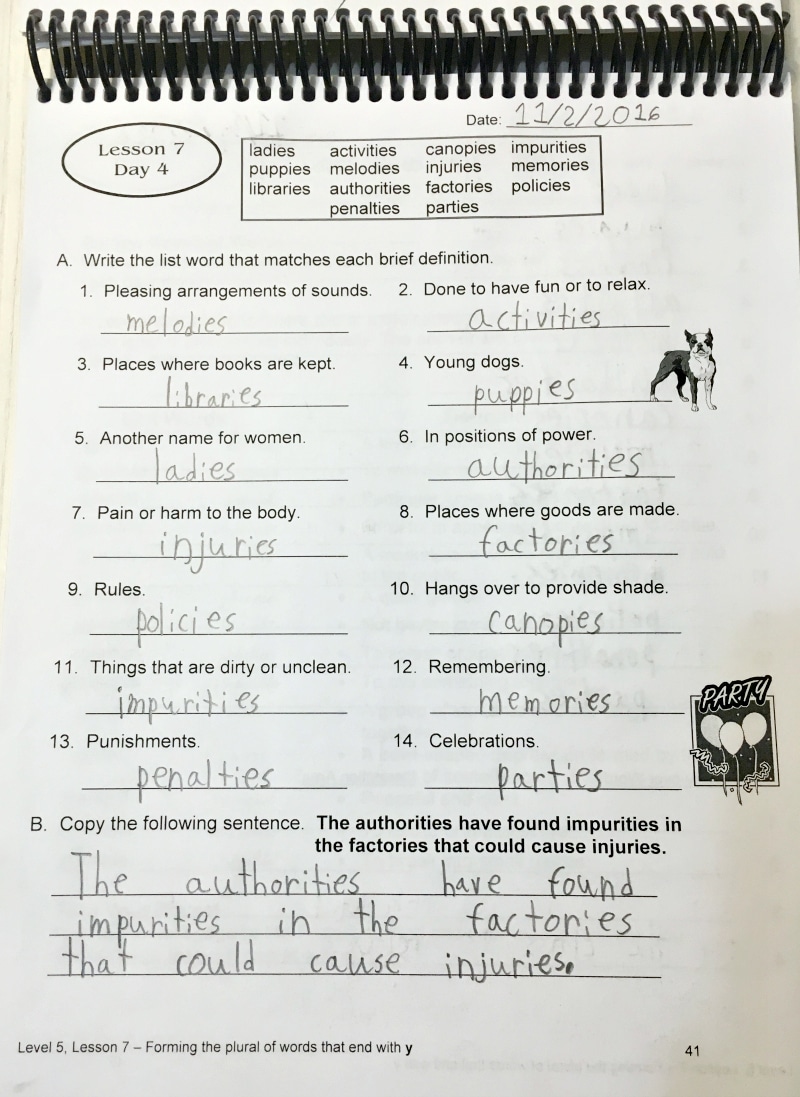 Date: 11/2/2016
Lesson 7
Day 4
ladies activities canopies impurities
puppies melodies injuries memories
libraries authorities factories policies
penalties parties
A. Write the list word that matches each brief definition.
1. Pleasing arrangements of sounds. 2. Done to have fun or to relax.
melodies activities
3. Places where books are kept. 4. Young dogs.
libraries puppies
5. Another name for women. 6. In positions of power.
ladies authorities
7. Pain or harm to the body. 8. Places where goods are made.
injuries factories
9. Rules. 10. Hangs over to provide shade.
policies canopies
11. Things that are dirty or unclean. 12. Remembering.
impurities memories
PARTY
13. Punishments. 14. Celebrations.
penalties parties
B. Copy the following sentence. The authorities have found impurities in
the factories that could cause injuries.
The authorities have found
impurities in the factories
that could cause injuries.
Level 5, Lesson 7 – Forming the plural of words that end with y 41